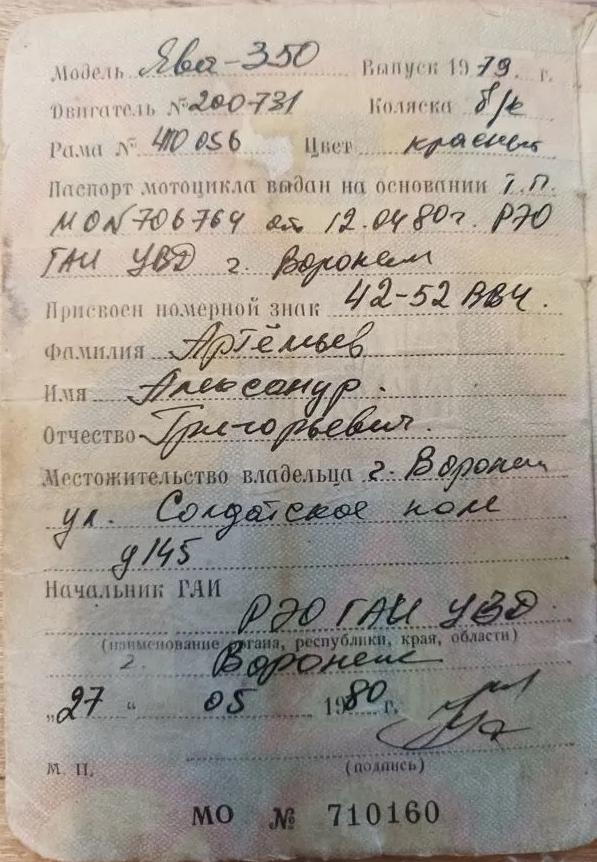 Модель Ява-350 Выпуск 1979 г.
Двигатель № 200731 Коляска б/к
Рама № 410056 Цвет красный
Паспорт мотоцикла выдан на основании Т.П.
МО № 706764 от 12.04 80 г. РЭО
ГАИ УВД г. Воронеж
Присвоен номерной знак 42-52 ВВЧ.
Фамилия Артёмьев
Имя Александр.
Отчество Григорьевич.
Местожительство владельца г. Воронеж
ул. Солдатское поле
д 145
Начальник ГАИ
РЭО ГАИ УВД
(наименование органа, республики, края, области)
г. Воронеж
„27“ 05 1980 г.
М. П. (подпись)
МО № 710160